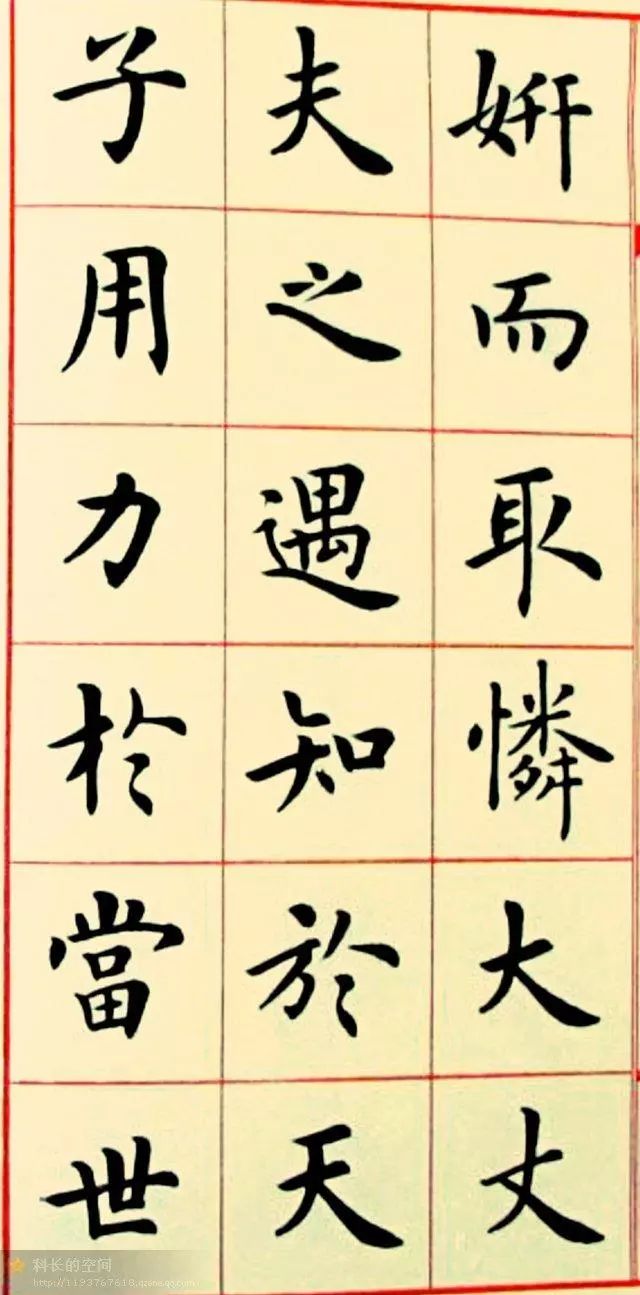 姸而取憐大丈
夫之遇知於天
子用力於當世
科长的空间
http://1193767618.qzone.qq.com